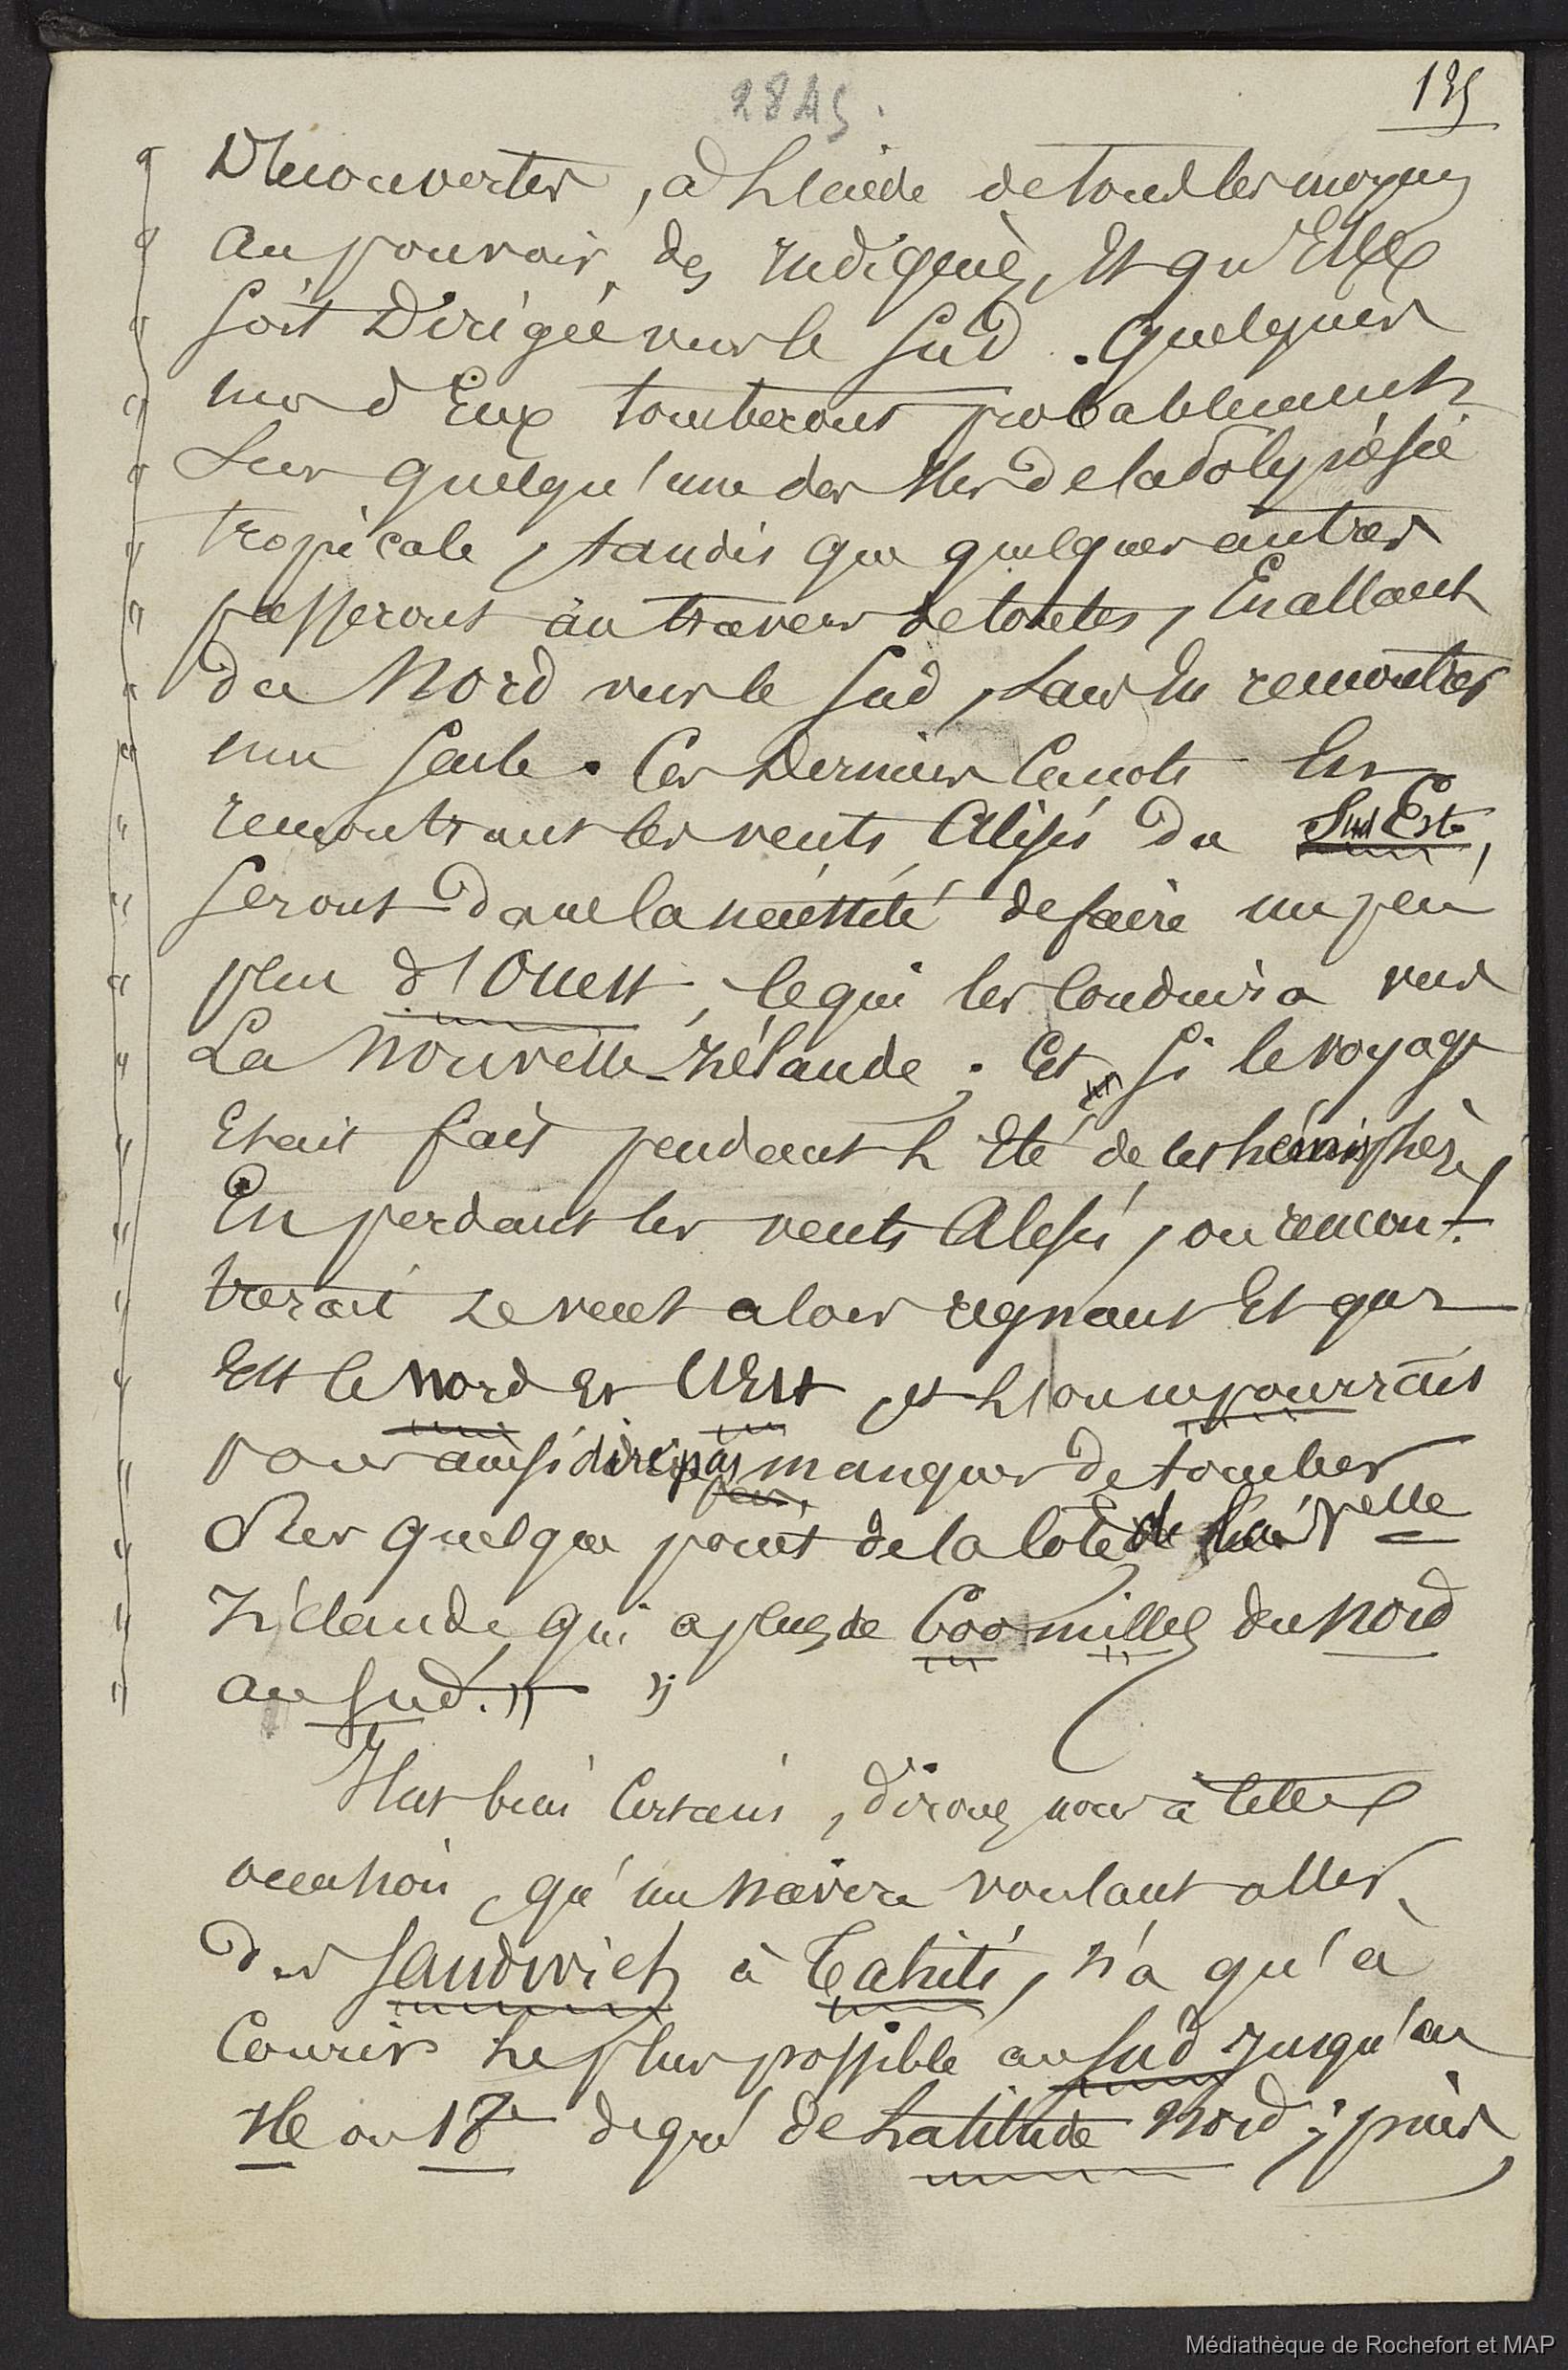 2845.
135
Découvertes, à l'aide de tous les moyens
au pouvoir des Indigènes, Et qu'Elle
soit Dirigée vers le Sud. Quelques
uns d'Eux tomberont probablement
Sur quelqu'une des Iles de la Polynésie
tropicale, tandis que quelques autres
passeront au travers de toutes, En allant
du Nord vers le Sud, sans En rencontrer
une seule. Ces Derniers Canots En
rencontrant les vents Alisés du Sud Est,
seront dans la nécessité de faire un peu
plus d'Ouest, ce qui les conduira vers
La Nouvelle-Zélande ; Et si le voyage
Etait fait pendant l'Eté de cet hémisphère,
En perdant les vents Alisés, on rencon-
trerait le vent alors régnant Et qui
Est le Nord Et l'Est, et l'on ne pourrait
pour ainsi dire pas manquer de tomber
Sur quelque point de la Côte de la Nvelle
Zélande, qui a plus de 600 milles du Nord
au Sud." "
Il est bien Certain, dirons nous à cette
occasion, qu'un Navire voulant aller
des Sandwich à Tahiti, n'a qu'à
Courir le plus possible au Sud jusqu'au
11e ou 12e degré de Latitude Nord ; puis
Médiathèque de Rochefort et MAP